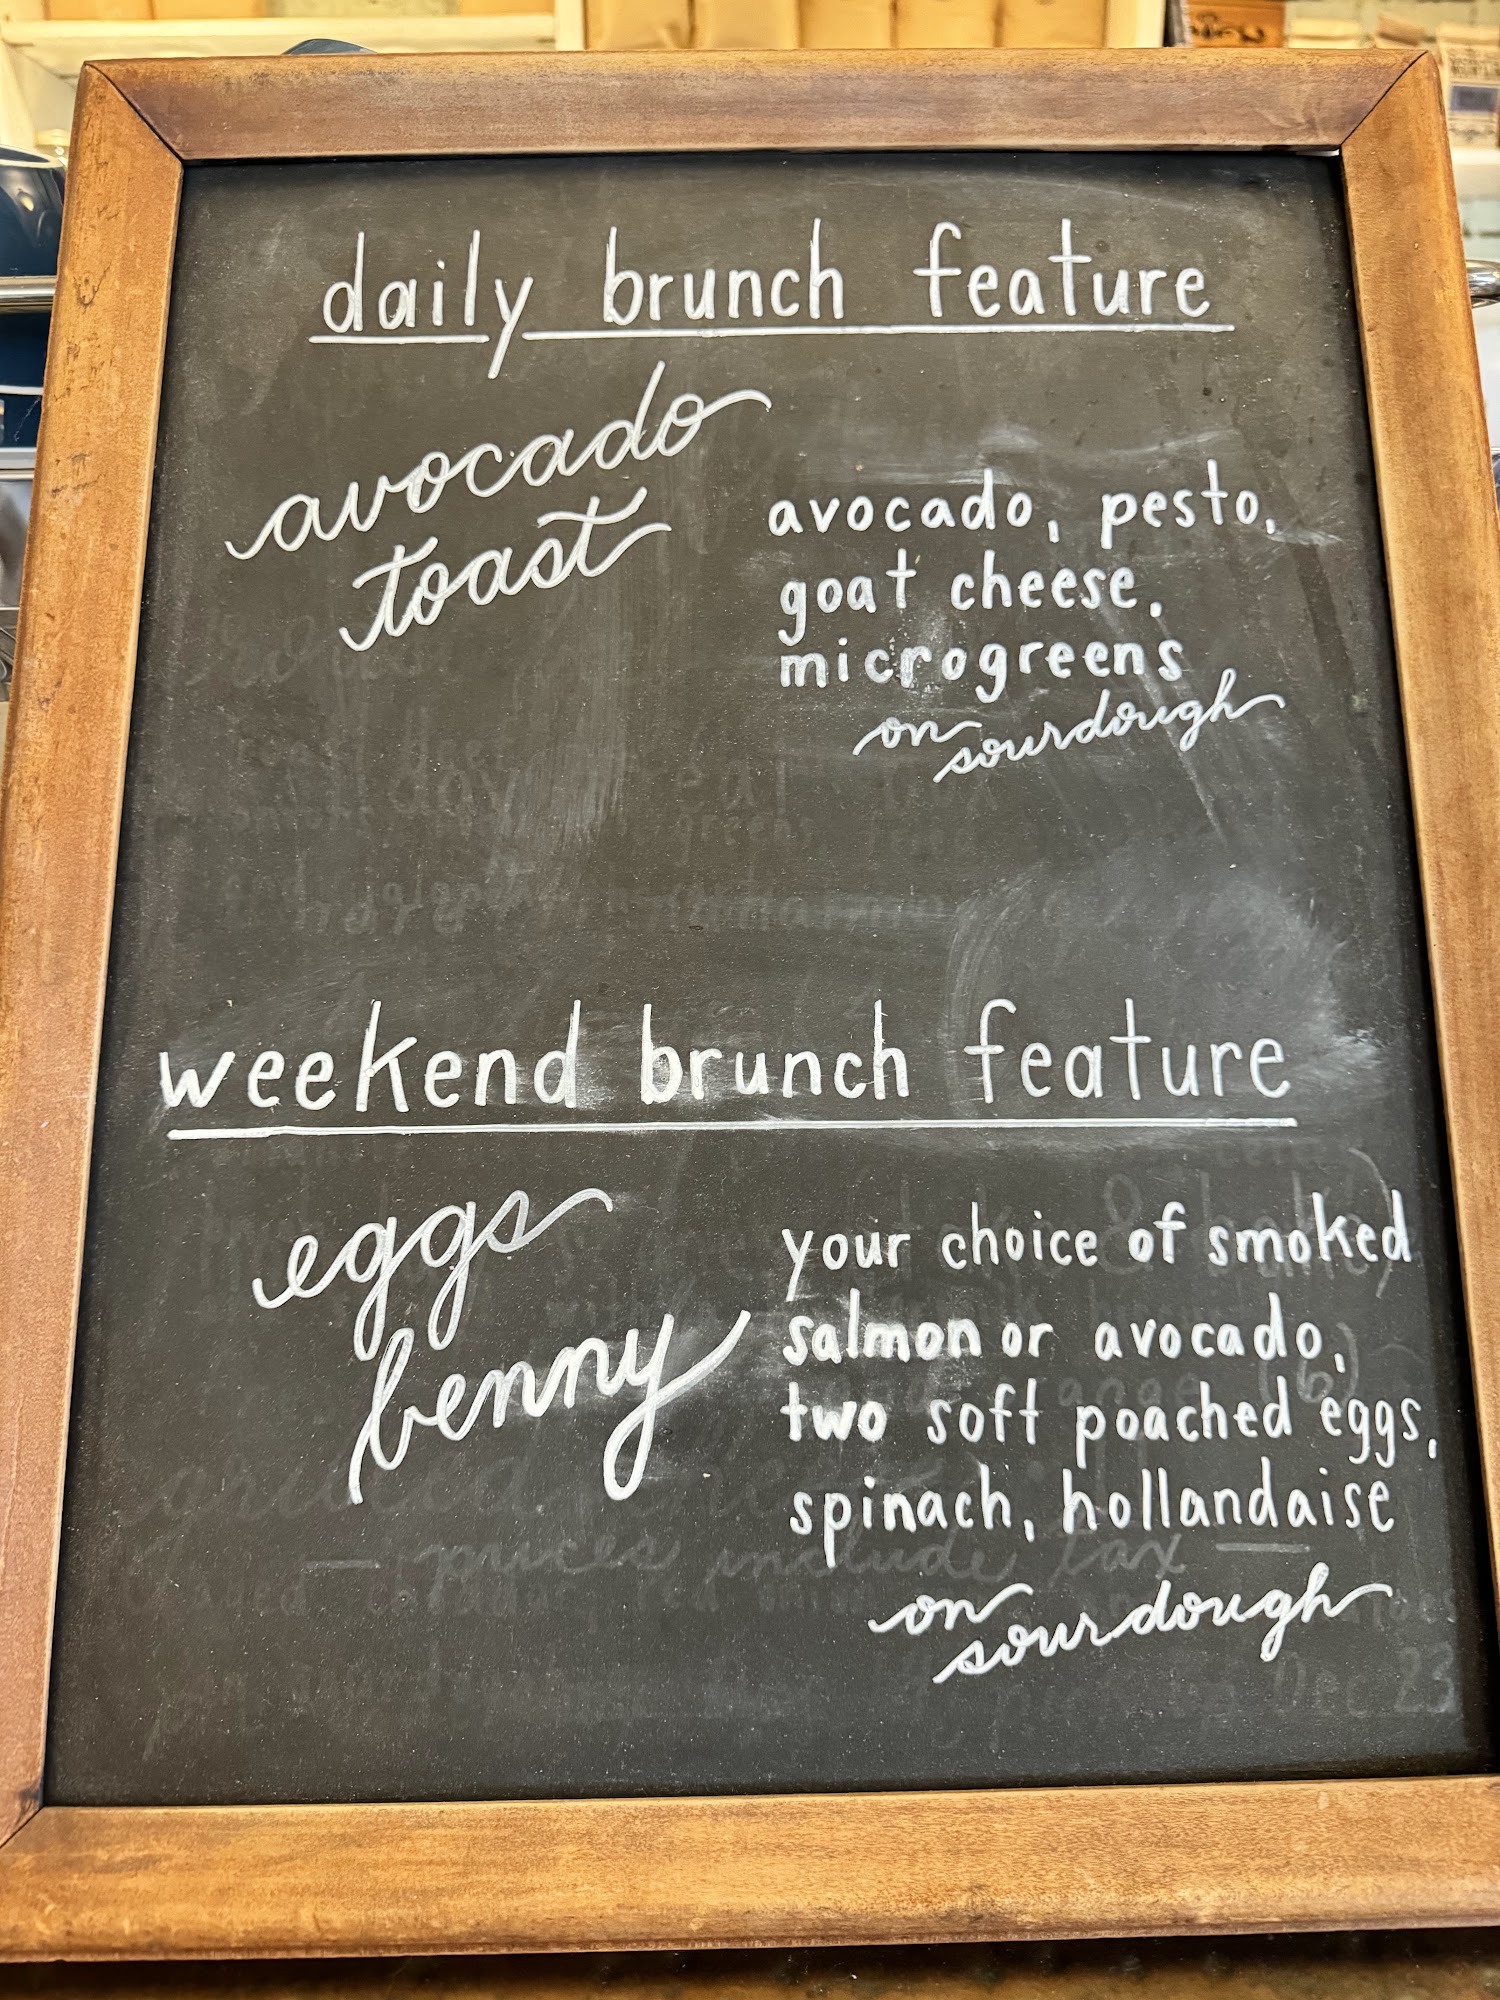 daily brunch feature
avocado
toast
avocado, pesto,
goat cheese,
microgreens
on
sourdough
weekend brunch feature
eggs
benny
your choice of smoked
salmon or avocado,
two soft poached eggs,
spinach, hollandaise
— prices include tax —
on
sourdough
Dec 23